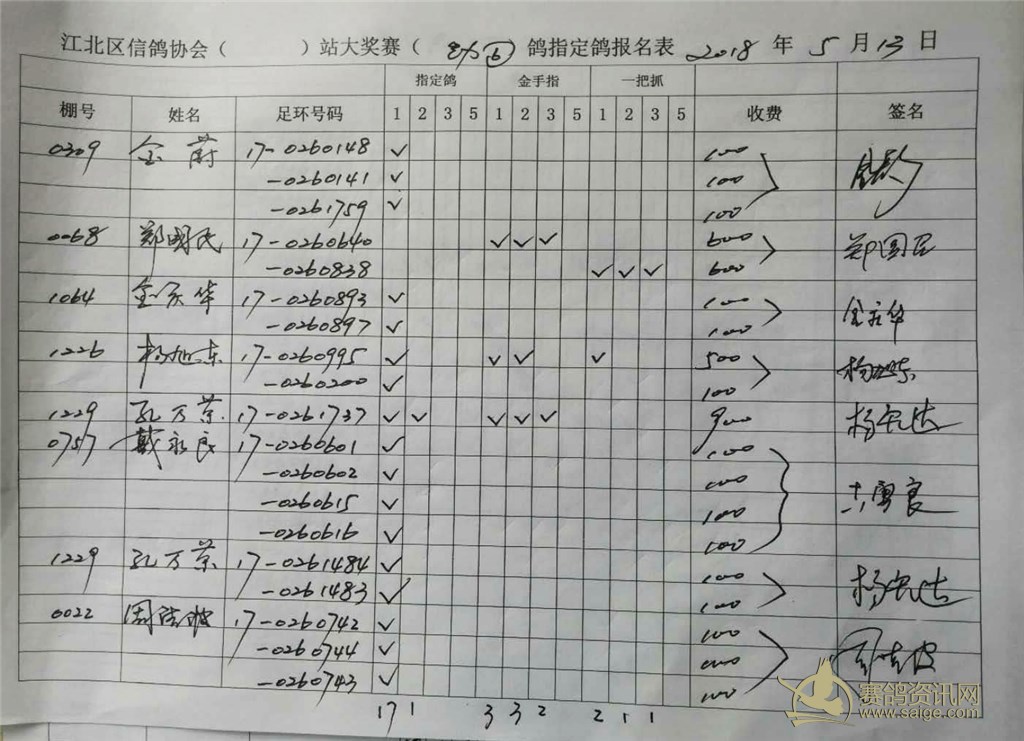 江北区信鸽协会（ ）站大奖赛（ ）鸽指定鸽报名表 2018 年 5 月 13 日
指定鸽 金手指 一把抓
棚号 姓名 足环号码 1 2 3 5 1 2 3 5 1 2 3 5 收费 签名
0309 金蔚 17-0260148 ✓ 100
-0260141 ✓ 100
-0261759 ✓ 100
0068 郑国民 17-0260640 ✓ ✓ ✓ 600 郑国民
-0260838 ✓ ✓ ✓ 600
1064 金庆华 17-0260893 ✓ 100 金庆华
-0260897 ✓ 100
1226 杨旭东 17-0260995 ✓ ✓ ✓ ✓ 500 杨旭东
-0260200 ✓ 100
1229 孔万荣 17-0261737 ✓ ✓ ✓ ✓ ✓ 900
0757 戴永良 17-0260601 ✓ 100
-0260602 ✓ 100
-0260615 ✓ 100
-0260616 ✓ 100
1229 孔万荣 17-0261484 ✓ 100
-0261483 ✓ 100
0022 17-0260742 ✓ 100
-0260744 ✓ 100
-0260743 ✓ 100
17 1 3 3 2 2 1 1
赛鸽资讯网
www.saige.com